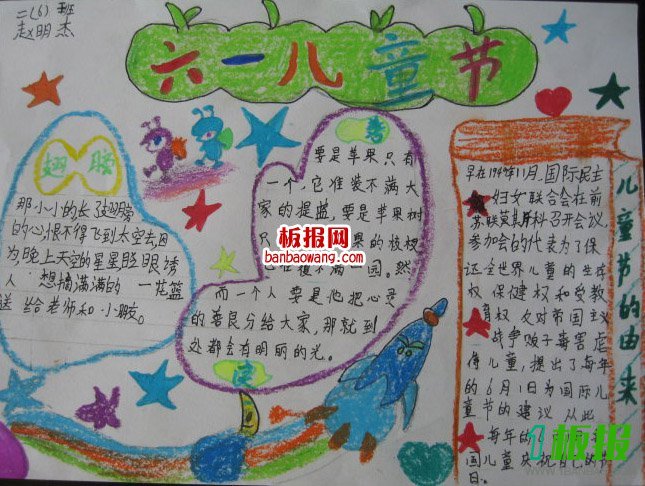 二(6)班
赵明杰
六一儿童节
翅膀
那小小的长了翅膀
的心,恨不得飞到太空去,因
为晚上天空的星星眨眼诱
人 想摘满满的 一花篮
送 给老师和小朋友。
善
要是苹果只有
一个,它准装不满大
家的提篮,要是苹果树
只 果的枝桠
它也覆不满一园。然
而一个人 要是他把心灵
的善良分给大家,那就到
处都会有明丽的光。
良
板报网
banbaowang.com
儿童节的由来
早在1949年11月,国际民主
妇女联合会在前
苏联莫斯科召开会议,
参加会的代表为了保
证全世界儿童的生存
权 保健权和受教
育权 反对帝国主义
战争贩子毒害虐
待儿童,提出了每年
的6月1日为国际儿
童节的建议 从此
每年的
国儿童庆祝自己的节
日。
板报